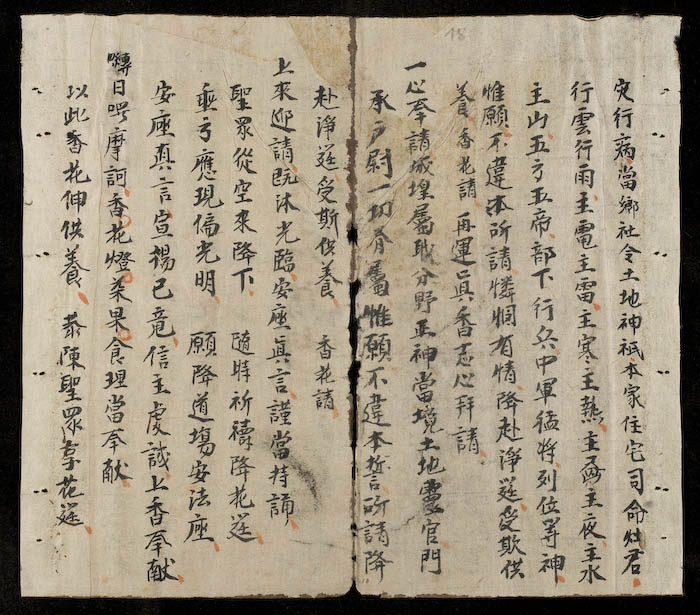 18
灾行病當鄉社令土地神祇本家住宅司命灶君
行雲行雨主電主雷主寒主熱主夜主水
主山五方五帝部下行兵中軍猛将列位等神
惟願不違本所請憐憫有情降赴淨筵受斯供
養香花請 再運真香志心拜請
一心奉請城埕屬联分野正神當境土地靈官門
承户尉一切眷属惟願不違本誓所請降
赴淨筵受斯供養 香花請
上來迎請既沐光臨安座真言謹當持誦
聖眾從空來降下 随時祈禱降花筵
垂方應現偏光明 願降道塲安法座
安座真言宣揚已竟信主虔誠上香奉献
囀日吽摩訶香花燈菜果食理當奉献
以此香花伸供養 恭陳聖眾享花筵